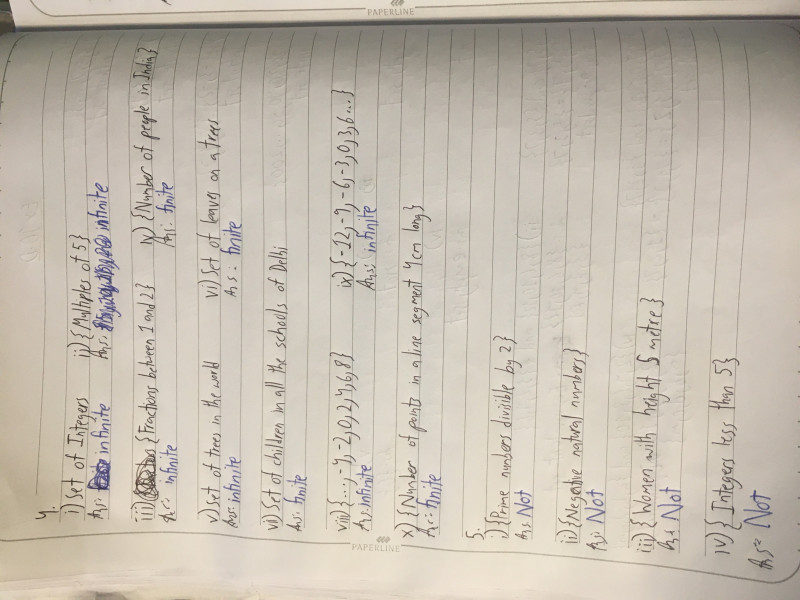 PAPERLINE
4.
i) Set of Integers ii) {Multiples of 5}
Ans: infinite Ans: infinite
iii) {Fractions between 1 and 2} iv) {Number of people in India}
Ans: infinite Ans: finite
v) Set of trees in the world vi) Set of leaves on a trees
Ans: infinite Ans: finite
vii) Set of children in all the schools of Delhi
Ans: finite
viii) {..., -4, -2, 0, 2, 4, 6, 8} ix) {-12, -9, -6, -3, 0, 3, 6...}
Ans: infinite Ans: infinite
x) {Number of points in a line segment 4cm long}
Ans: finite
5.
i) {Prime numbers divisible by 2}
Ans: Not
ii) {Negative natural numbers}
Ans: Not
iii) {Women with height 5 metre}
Ans: Not
iv) {Integers less than 5}
Ans: Not
PAPERLINE